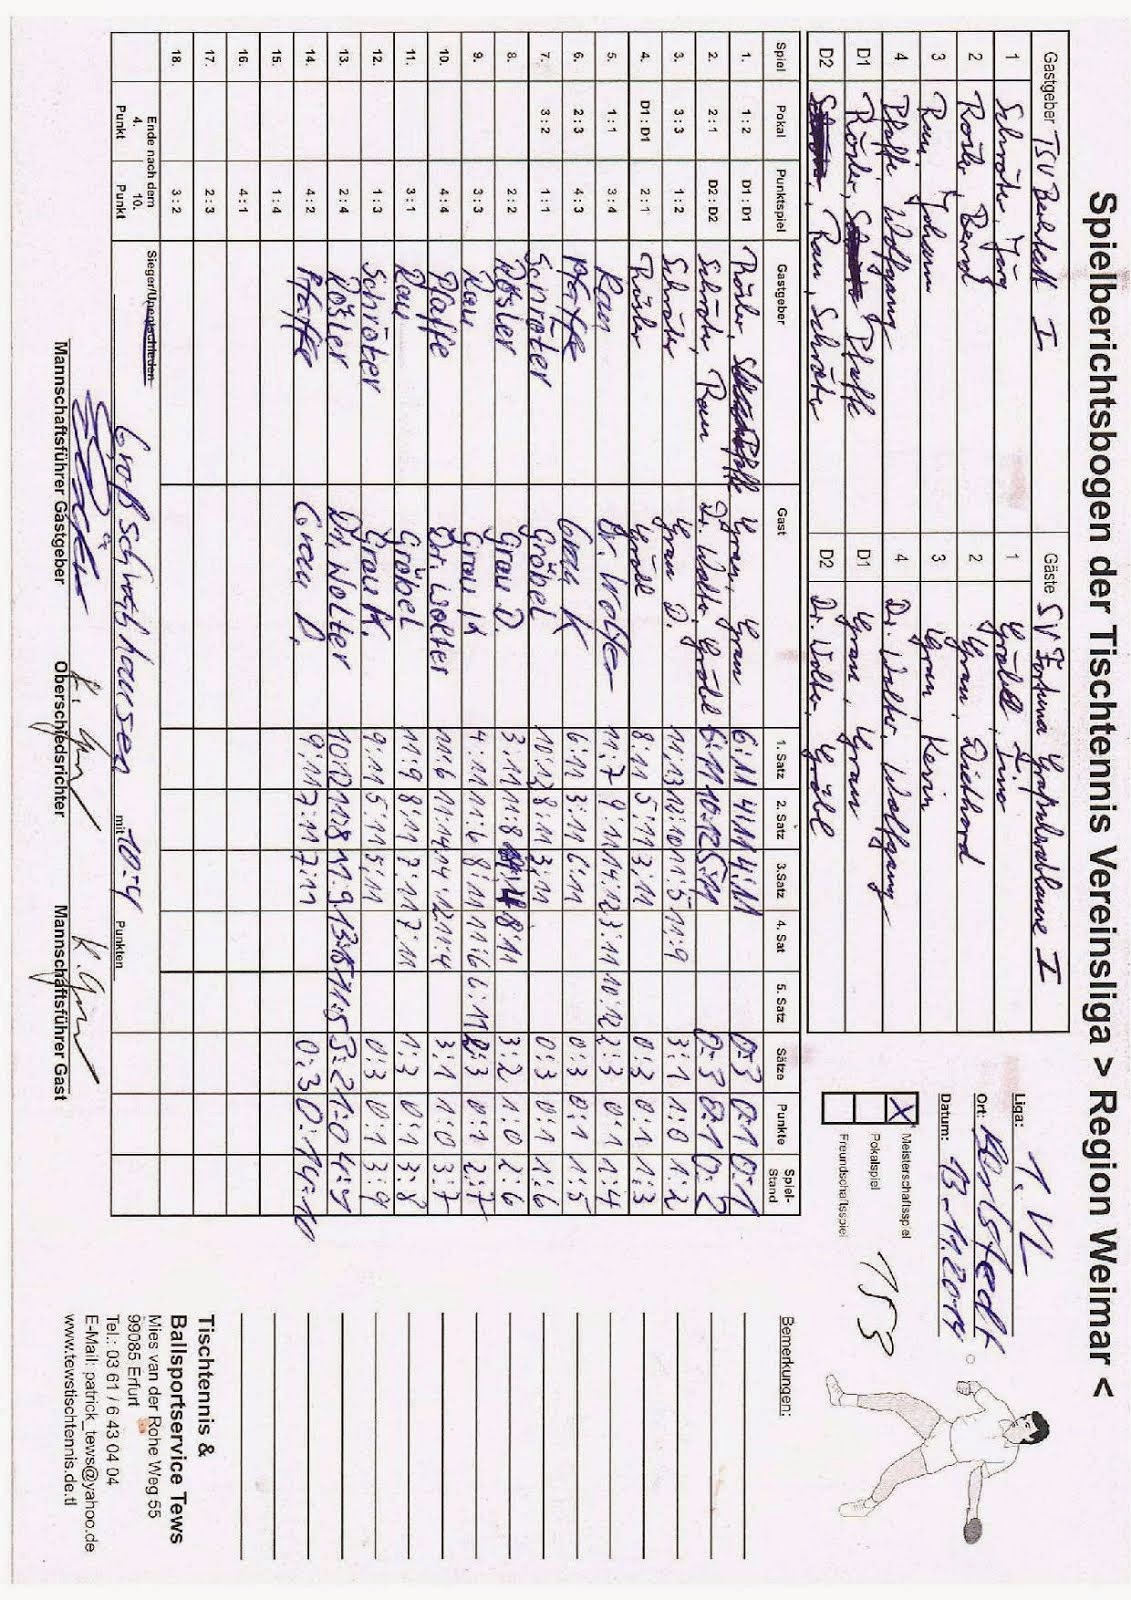 Spielberichtsbogen der Tischtennis Vereinsliga > Region Weimar <
Gastgeber TSV Berlstedt I Gäste SV Fortuna I
1 Schröter, Jörg 1 Gröbel, Timo
2 Rösler, Bernd 2 Grau, Diethard
3 Rau, Johann 3 Grau Kevin
4 Pfaffe Wolfgang 4 Dr. Wolter, Wolfgang
D1 Rösler, Pfaffe D1 Grau, Grau
D2 Rau, Schröter D2 Dr. Wolter, Gröbel
Liga: 1. VL
Ort: Berlstedt
Datum: 13.11.2014
X Meisterschaftsspiel
Pokalspiel
Freundschaftsspiel
153
Spiel Pokal Punktspiel Gastgeber Gast 1. Satz 2. Satz 3. Satz 4. Sat 5. Satz Sätze Punkte Spiel-Stand
1. 1 : 2 D1 : D1 Rösler, Pfaffe Grau, Grau 6:11 4:11 4:11 0:3 0:1 0:1
2. 2 : 1 D2 : D2 Schröter, Rau Dr. Wolter, Gröbel 6:11 10:12 5:11 0:3 0:1 0:2
3. 3 : 3 1 : 2 Schröter Grau D. 11:13 12:10 11:5 11:9 3:1 1:0 1:2
4. D1 : D1 2 : 1 Rösler Gröbel 8:11 5:11 3:11 0:3 0:1 1:3
5. 1 : 1 3 : 4 Rau Dr. Wolter 11:7 9:11 14:12 3:11 10:12 2:3 0:1 1:4
6. 2 : 3 4 : 3 Pfaffe Grau K 6:11 3:11 6:11 0:3 0:1 1:5
7. 3 : 2 1 : 1 Schröter Gröbel 10:12 8:11 3:11 0:3 0:1 1:6
8. 2 : 2 Rösler Grau D. 3:11 11:8 8:11 3:2 1:0 2:6
9. 3 : 3 Rau Grau K 4:11 11:6 8:11 11:6 6:11 2:3 0:1 2:7
10. 4 : 4 Pfaffe Dr. Wolter 11:6 11:4 14:12 11:4 3:1 1:0 3:7
11. 3 : 1 Rau Gröbel 11:9 8:11 7:11 7:11 1:3 0:1 3:8
12. 1 : 3 Schröter Grau K. 9:11 5:11 5:11 0:3 0:1 3:9
13. 2 : 4 Rösler Dr. Wolter 10:12 11:8 11:9 13:15 11:5 3:2 1:0 4:9
14. 4 : 2 Pfaffe Grau D. 9:11 7:11 7:11 0:3 0:1 4:10
15. 1 : 4
16. 4 : 1
17. 2 : 3
18. 3 : 2
Ende nach dem
4. Punkt 10. Punkt
Sieger/Unentschieden
Großschwabhausen mit 10:4 Punkten
Mannschaftsführer Gastgeber Oberschiedsrichter Mannschaftsführer Gast
Bemerkungen:
Tischtennis &
Ballsportservice Tews
Mies van der Rohe Weg 55
99085 Erfurt
Tel.: 03 61 / 6 43 04 04
E-Mail: patrick_tews@yahoo.de
www.tewstischtennis.de.tl